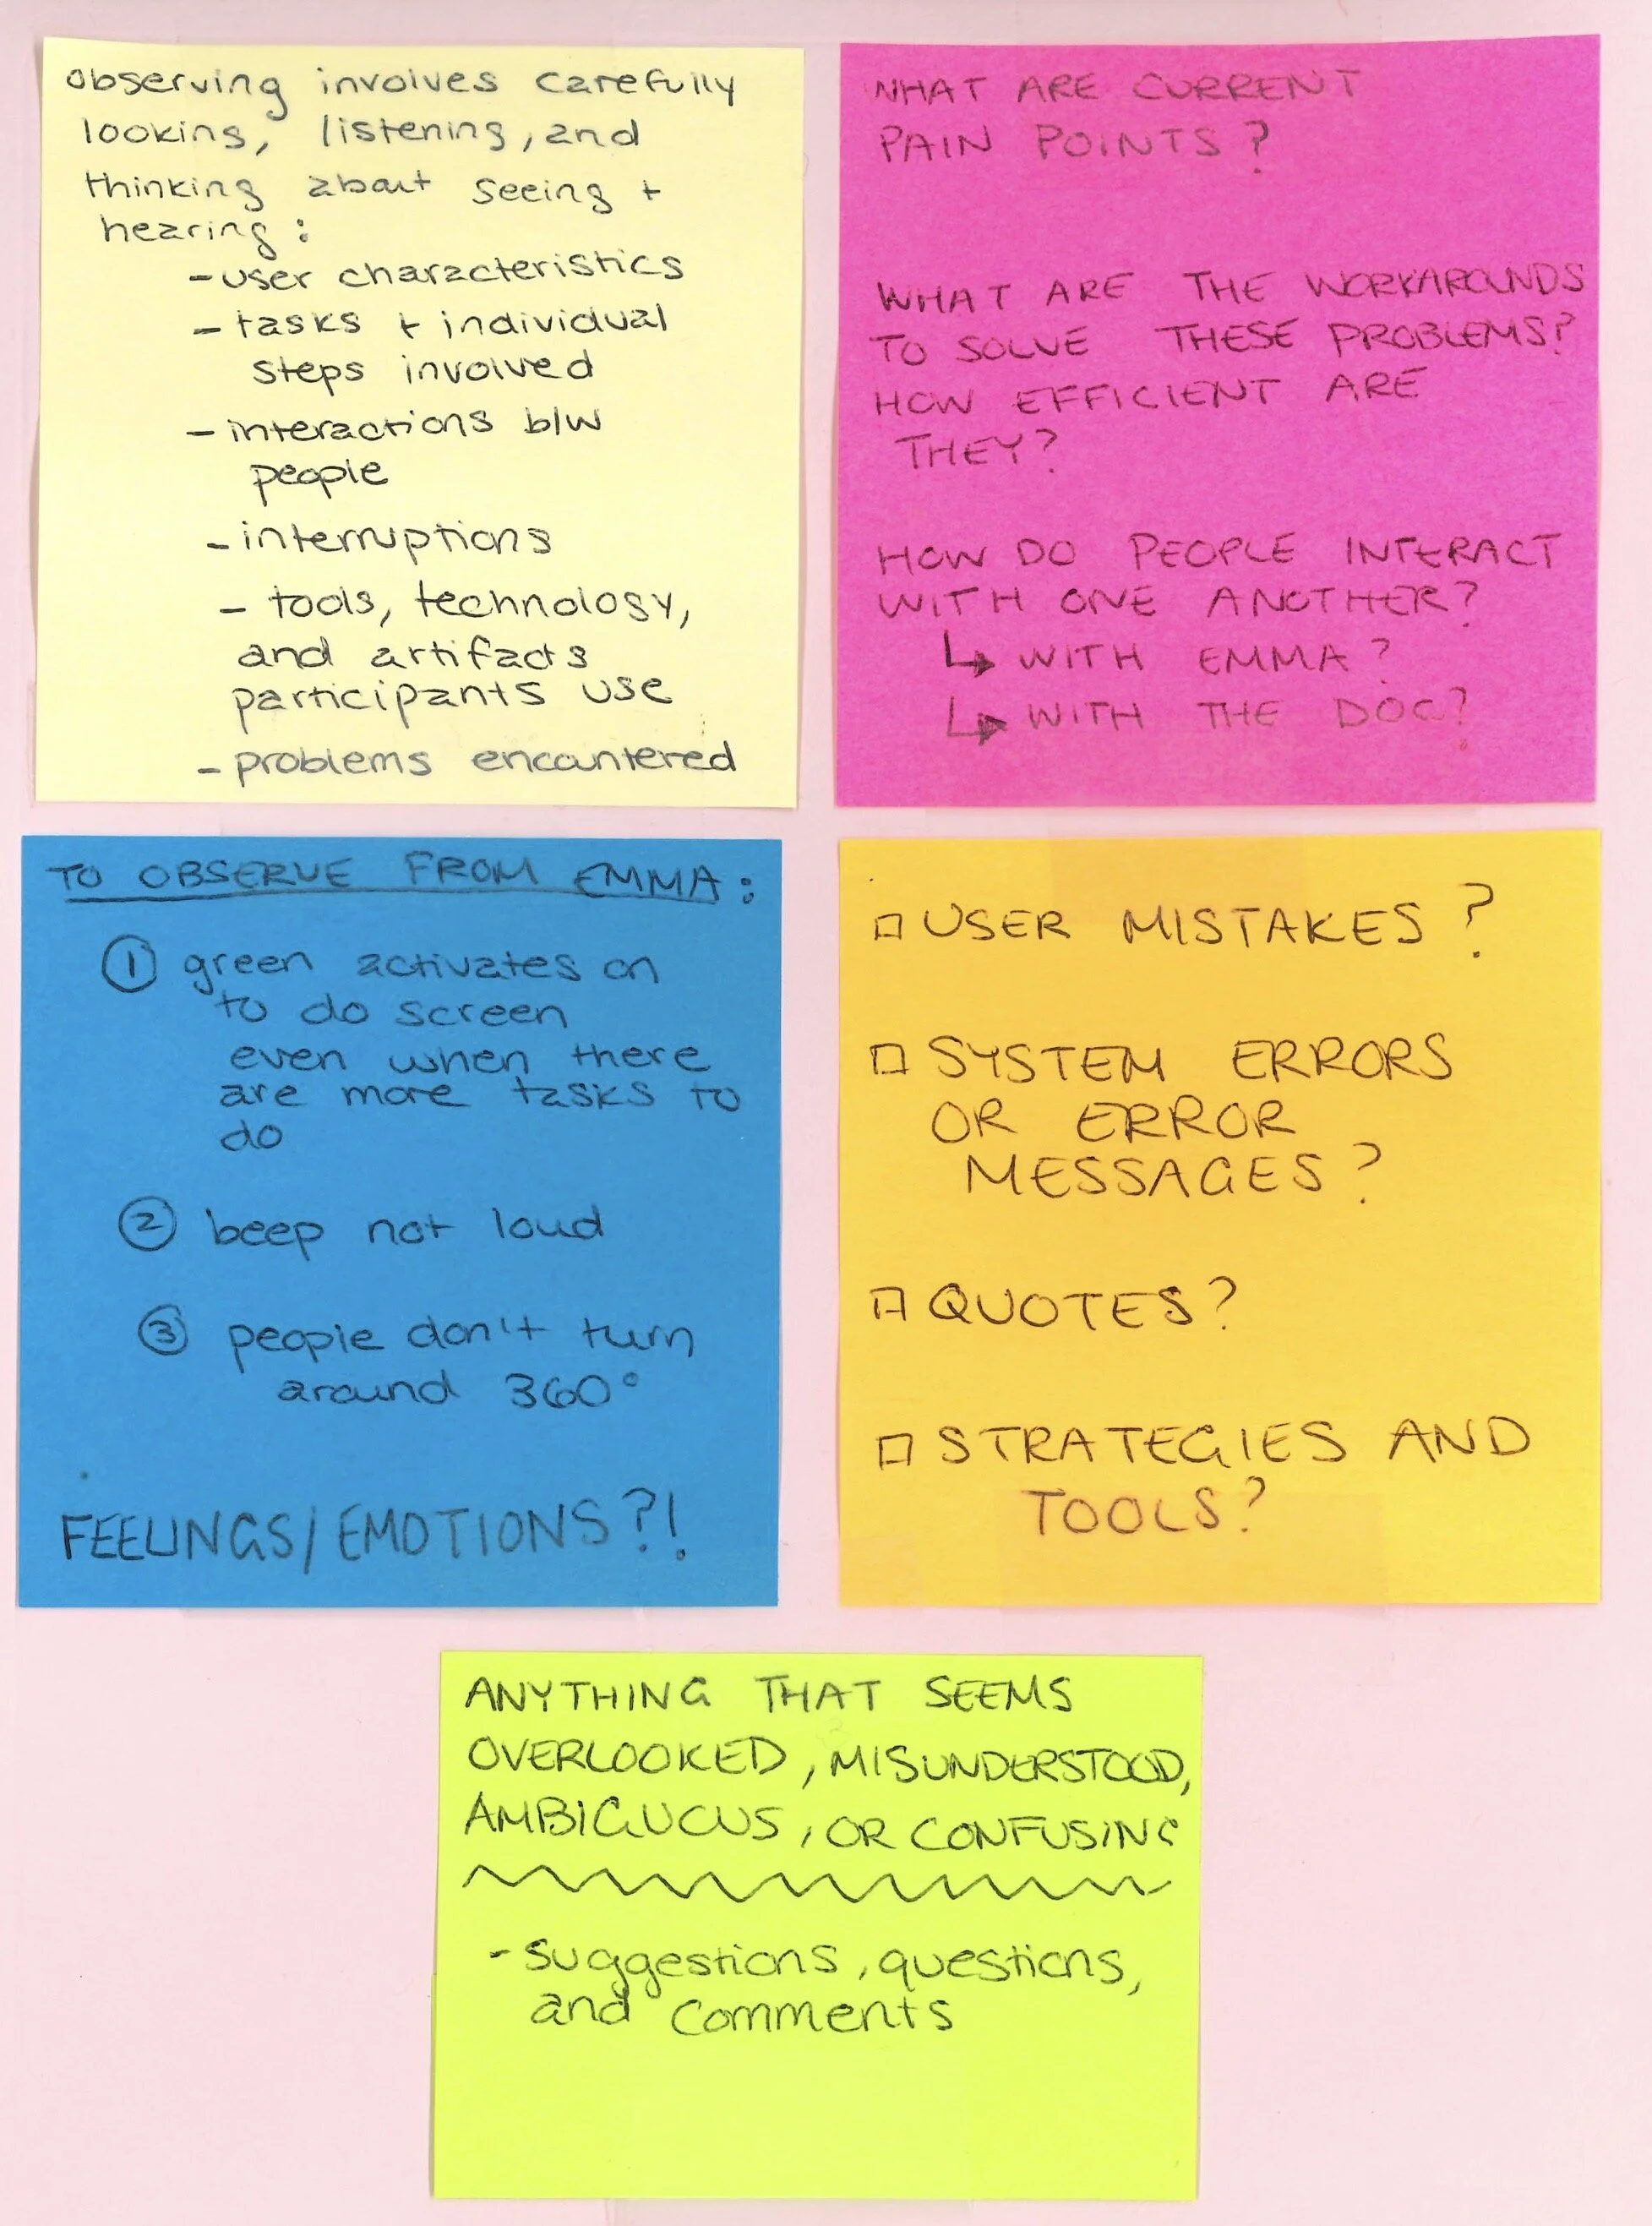 Observing involves carefully
looking, listening, and
thinking about seeing +
hearing:
- user characteristics
- tasks + individual
steps involved
- interactions b/w
people
- interruptions
- tools, technology,
and artifacts
participants use
- problems encountered
WHAT ARE CURRENT
PAIN POINTS?
WHAT ARE THE WORKAROUNDS
TO SOLVE THESE PROBLEMS?
HOW EFFICIENT ARE
THEY?
HOW DO PEOPLE INTERACT
WITH ONE ANOTHER?
↳ WITH EMMA?
↳ WITH THE DOC?
TO OBSERVE FROM EMMA:
① green activates on
to do screen
even when there
are more tasks to
do
② beep not loud
③ people don't turn
around 360°
FEELINGS/EMOTIONS?!
□ USER MISTAKES?
□ SYSTEM ERRORS
OR ERROR
MESSAGES?
□ QUOTES?
□ STRATEGIES AND
TOOLS?
ANYTHING THAT SEEMS
OVERLOOKED, MISUNDERSTOOD,
AMBIGUOUS, OR CONFUSING
- suggestions, questions,
and comments